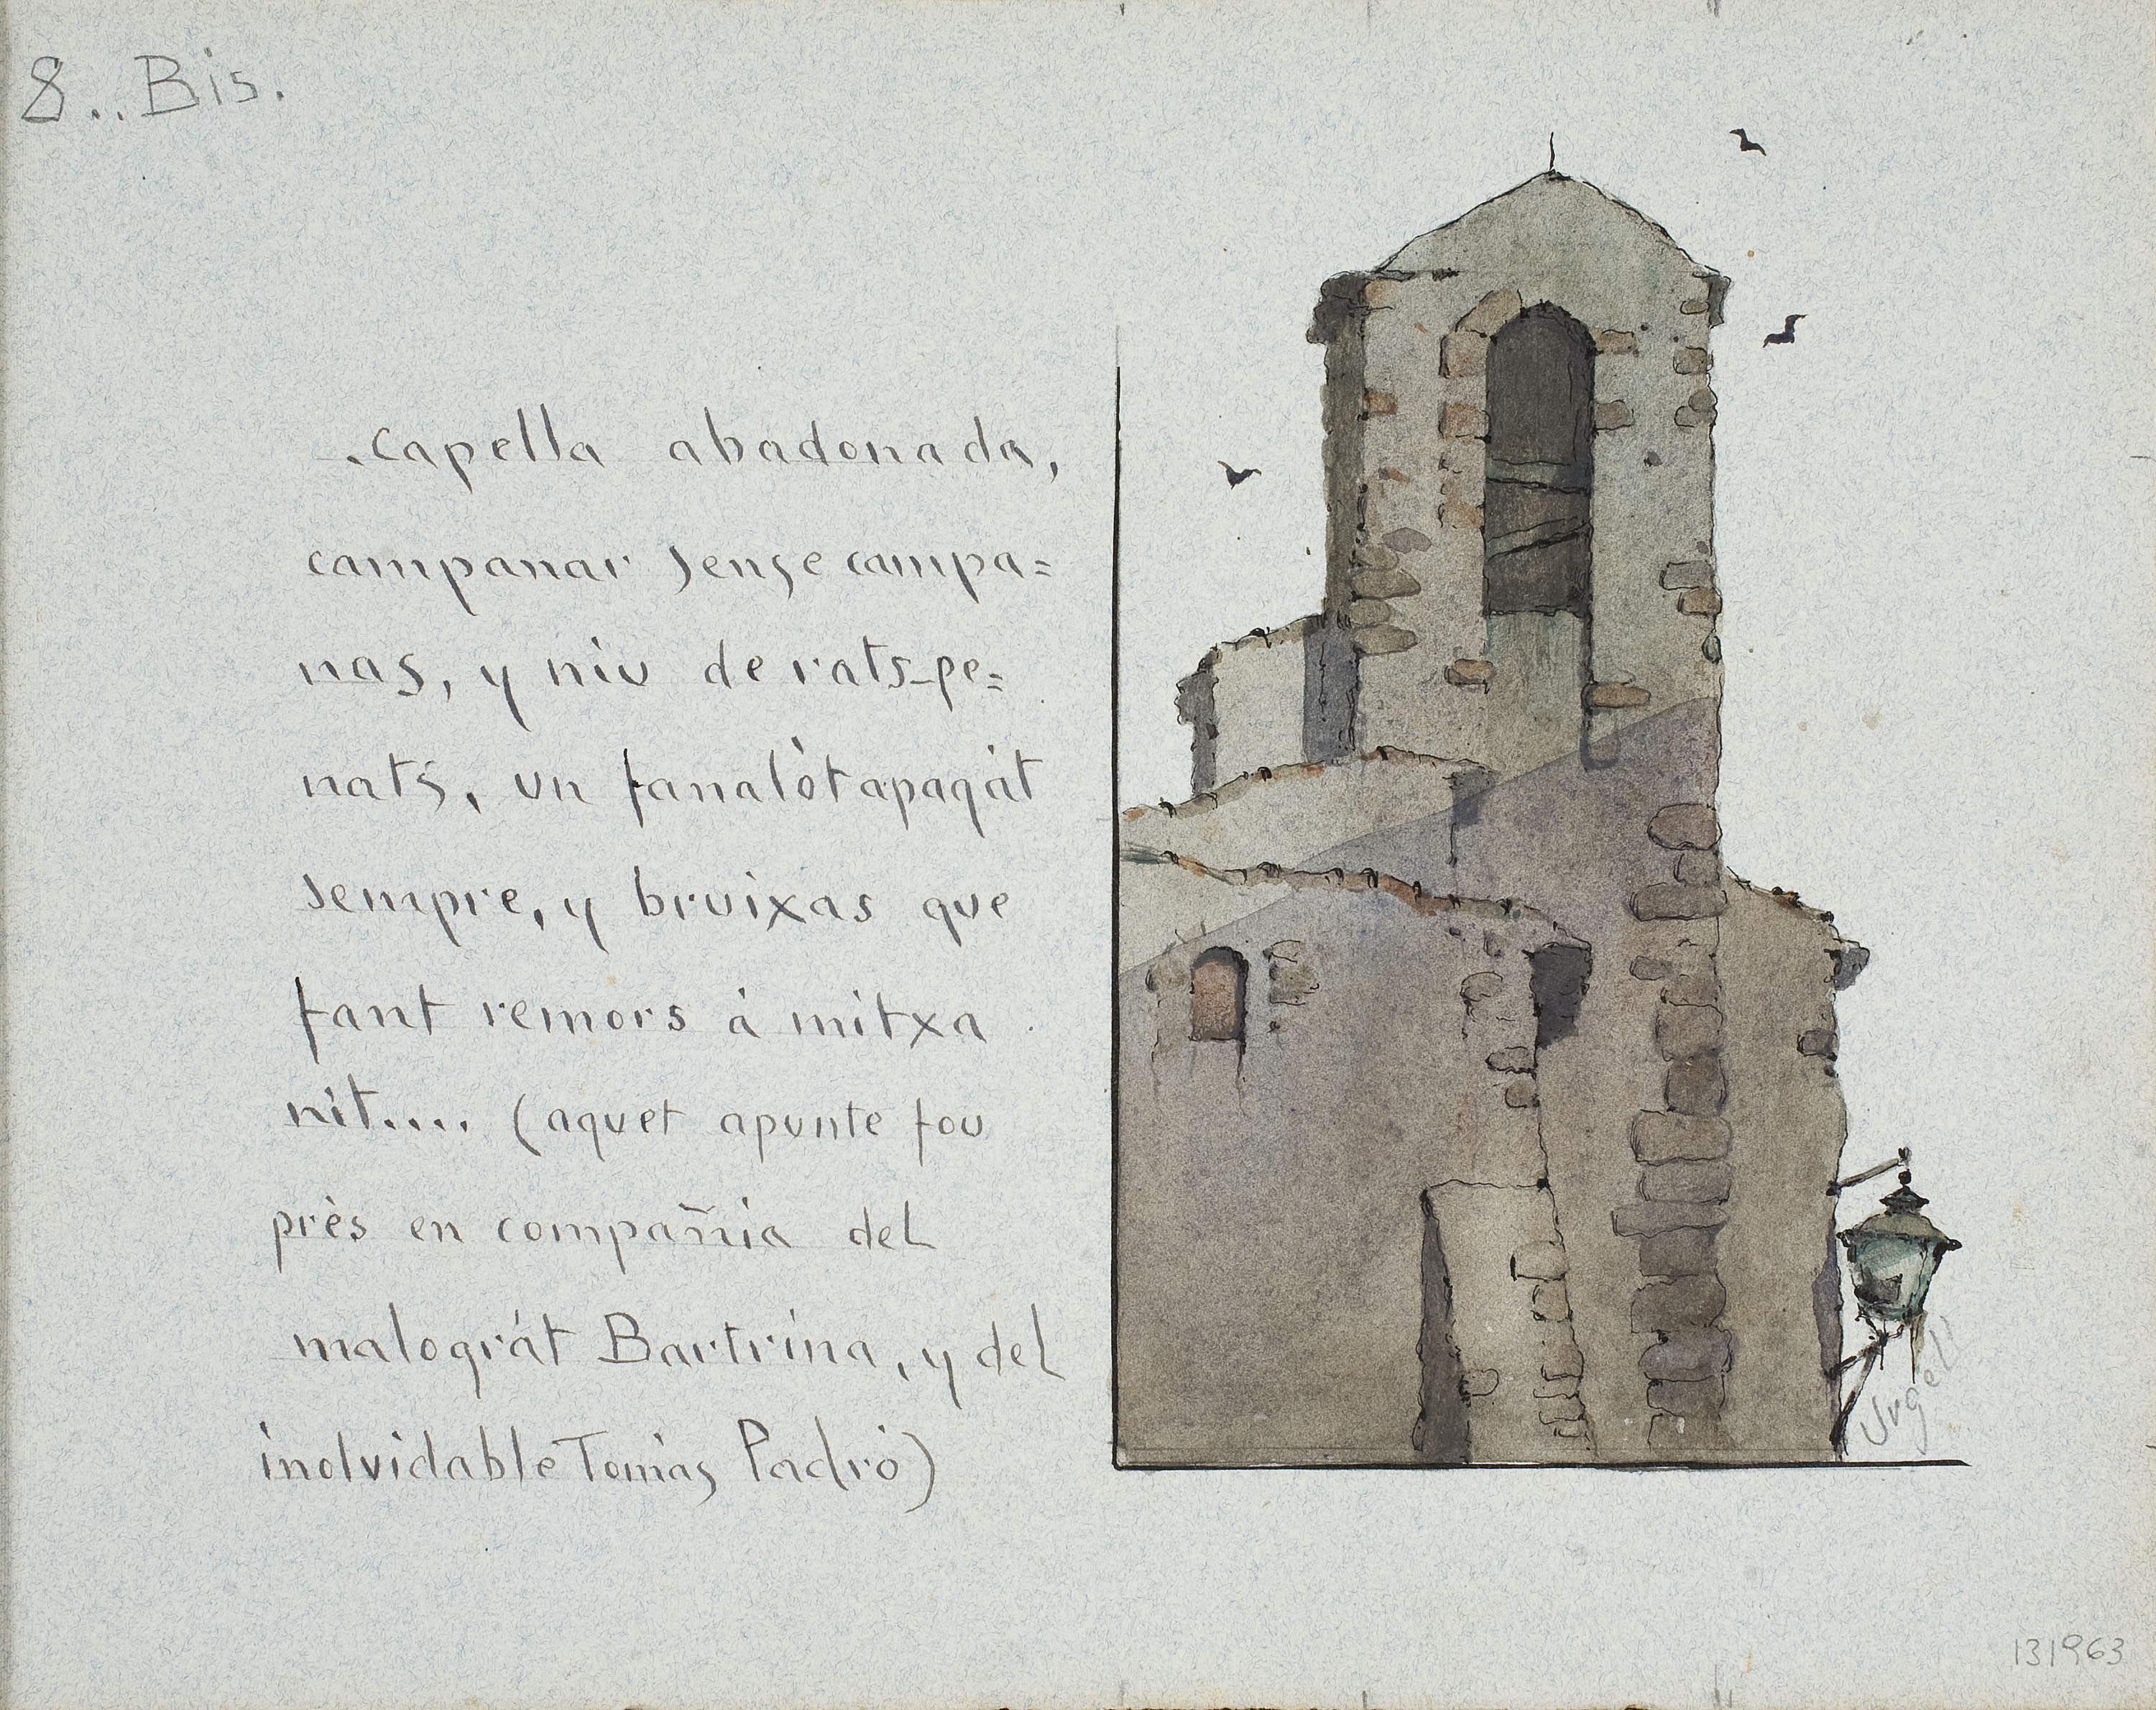 8.. Bis.
.Capella abadonada,
campanar sense campa=
nas, y niu de rats-pe=
nats, un fanalòt apagát
sempre, y bruixas que
fant remors á mitxa
nit.... (aquet apunte fou
près en compañia del
malográt Bartrina, y del
inolvidable Tomás Padró)
Urgell
131963